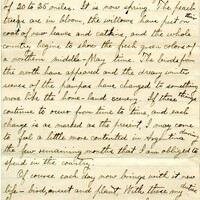 of 20 to 35 miles. It is now spring. The peach
trees are in bloom, the willows have put on their
coat of new leaves and catkins, and the whole
country begins to show the fresh green colors of
a northern middle-May time. The birds from
the north have appeared and the dreary winter
scenes of the pampas have changed to something
more like the home-land scenery. If these things
continue to occur from time to time, and each
change is as marked as the present, I may come
to feel a little more contented in Argentina during
the few remaining months that I am obliged to
spend in the country.
Of course each day now brings with it new
life - bird, insect and plant. With these my duties